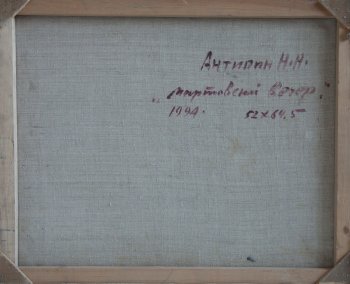 Антипин Н.Н.
„Мартовский вечер."
1994. 52х64,5